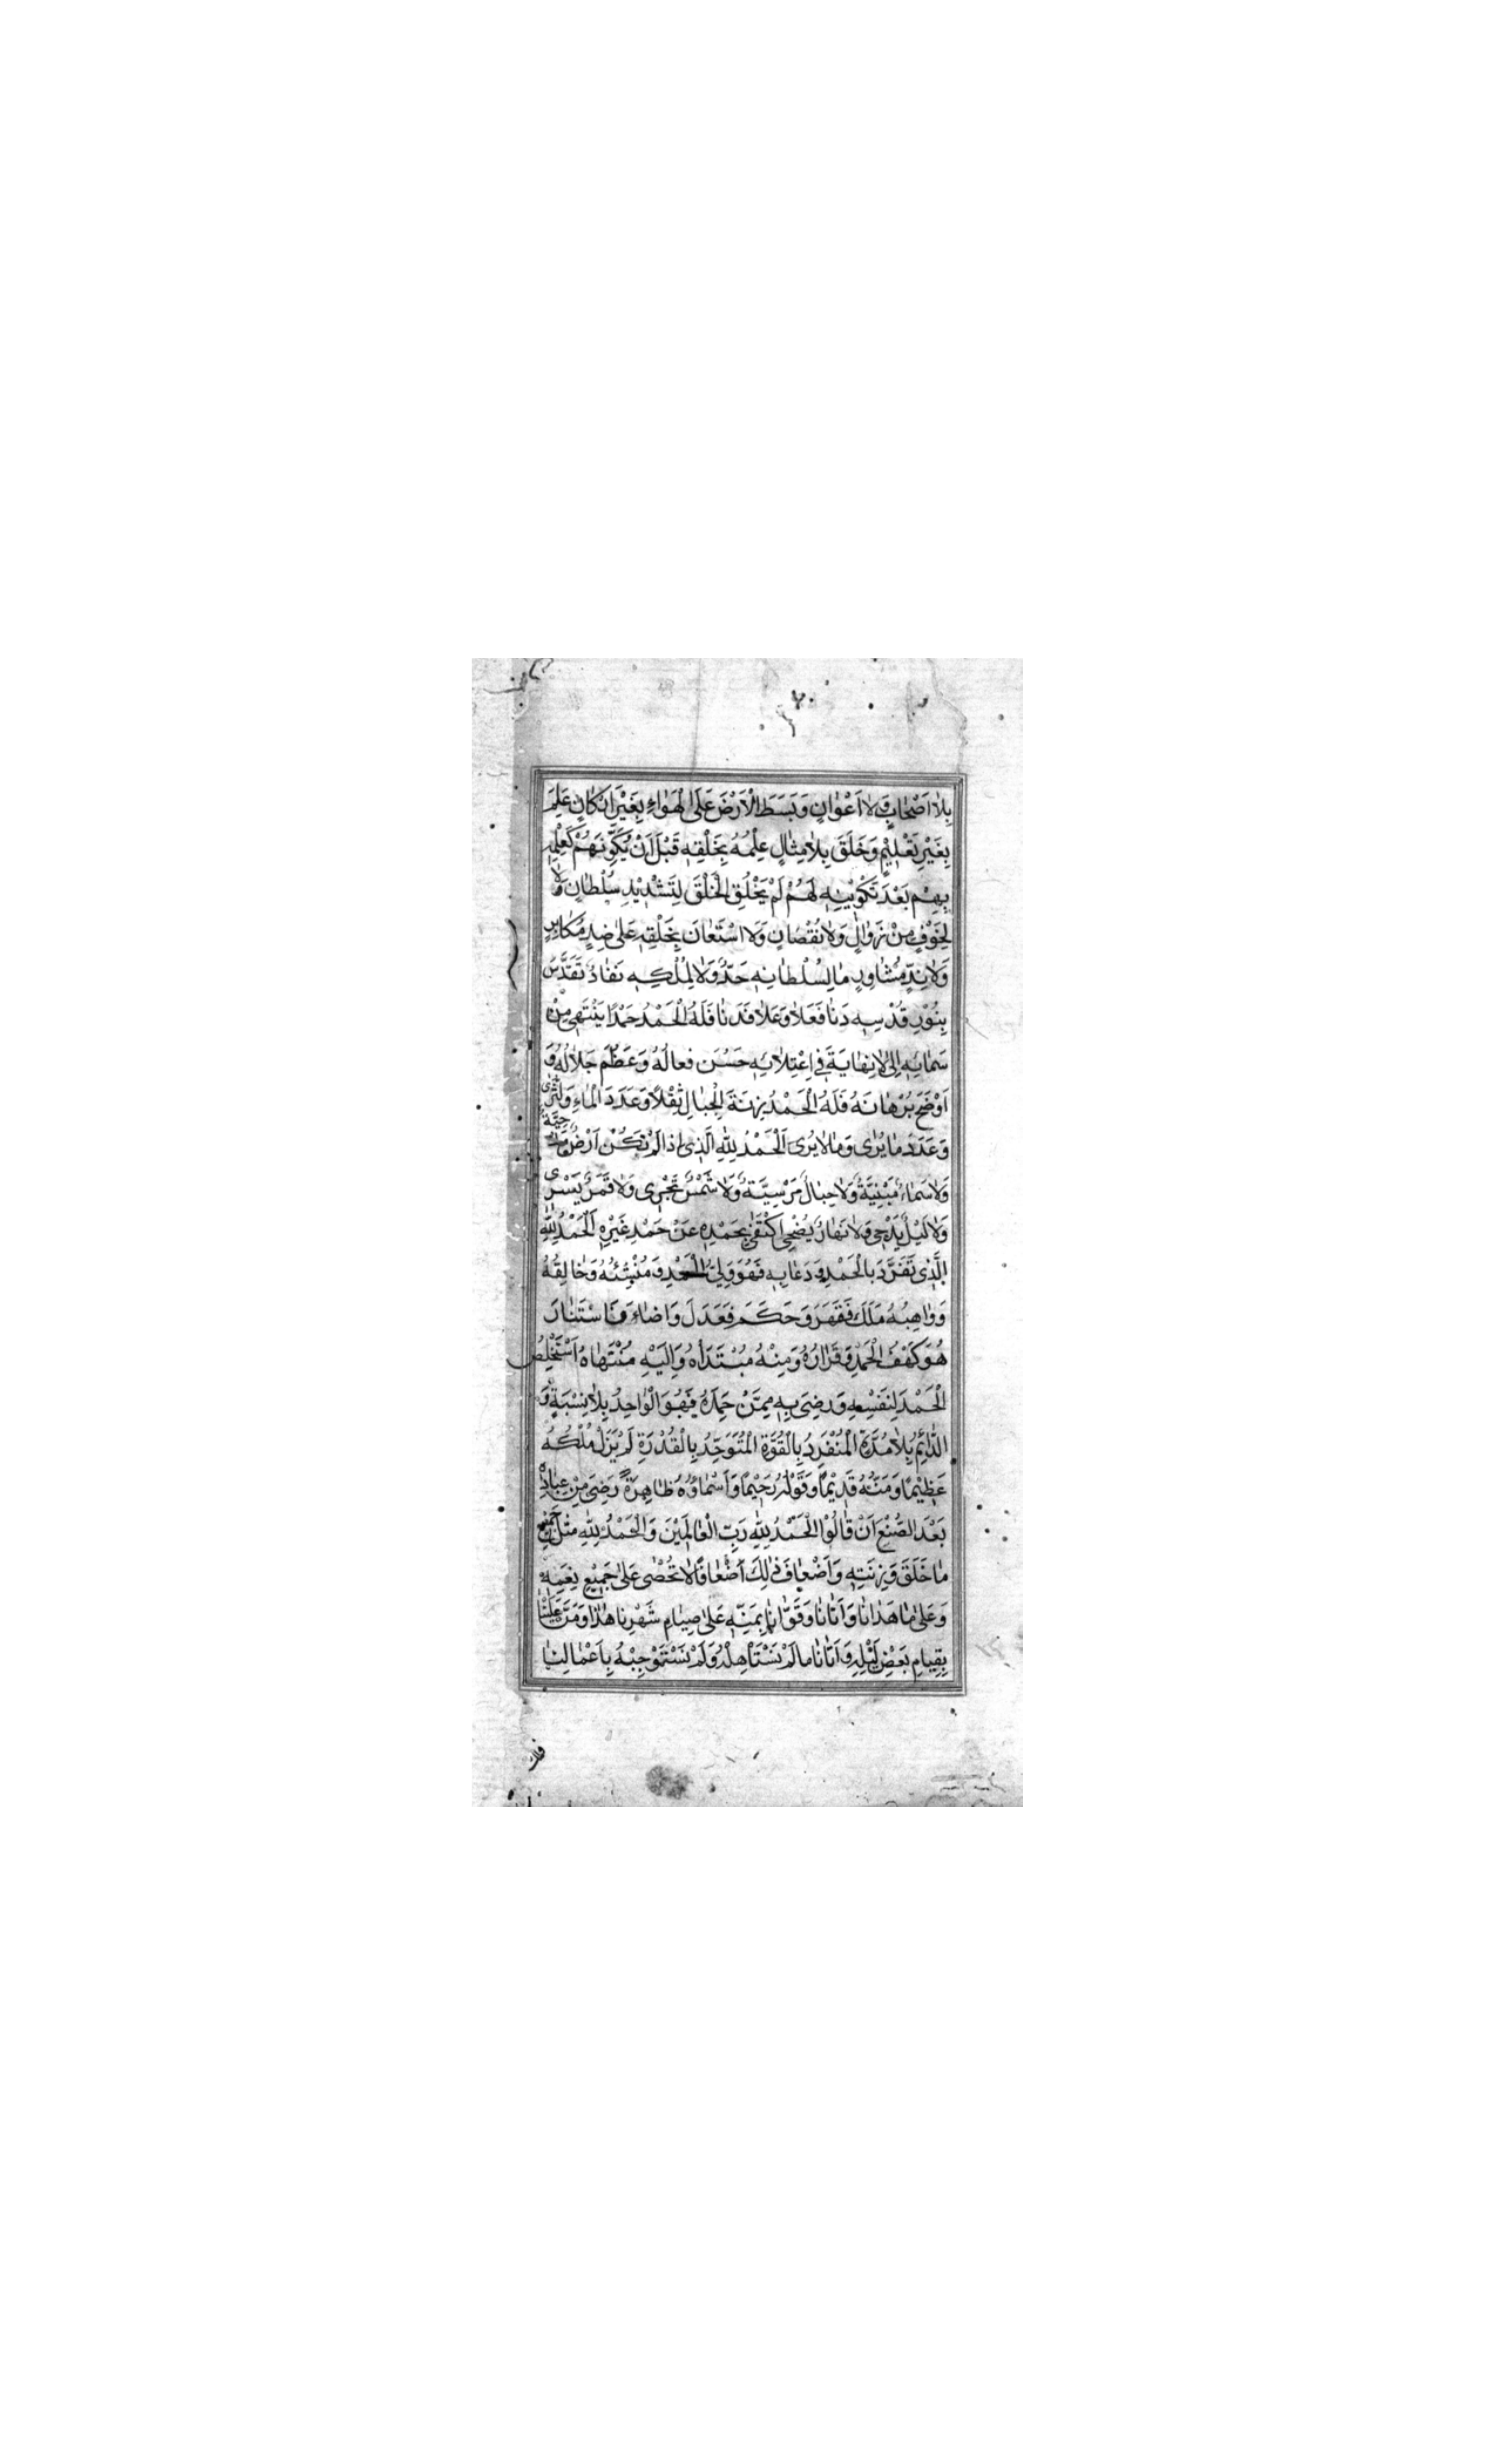 بِلاٰ اَصْحٰابٍ وَلاٰ اَعْوٰانٍ وَبَسَطَ الْاَرْضَ عَلَى الْهَوٰاءِ بِغَيْرِ اَرْكٰانٍ عَلِمَ
بِغَيْرِ تَعْلِيْمٍ وَخَلَقَ بِلاٰ مِثٰالٍ عِلْمُهُ بِخَلْقِهٖ قَبْلَ اَنْ يُكَوِّنَهُمْ كَعِلْمِهٖ
بِهِمْ بَعْدَ تَكْوِيْنِهٖ لَهُمْ لَمْ يَخْلُقِ الْخَلْقَ لِتَشْدِيْدِ سُلْطٰانٍ وَلاٰ
لِخَوْفٍ مِنْ زَوٰالٍ وَلاٰ نُقْصٰانٍ وَلاَ اسْتَعٰانَ بِخَلْقِهٖ عَلٰى ضِدٍّ مُكٰابِرٍ
وَلاٰ نِدٍّ مُشٰاوِرٍ مٰا لِسُلْطٰانِهٖ حَدٌّ وَلاٰ لِمُلْكِهٖ نَفٰادٌ تَقَدَّسَ
بِنُوْرِ قُدْسِهٖ دَنٰا فَعَلاٰ وَعَلاٰ فَدَنٰا فَلَهُ الْحَمْدُ حَمْدًا يَنْتَهِيْ مِنْ
سَمٰائِهٖ اِلٰى لاٰ نِهٰايَةَ فِي اِعْتِلاٰئِهٖ حَسُنَ فِعٰالُهُ وَعَظُمَ جَلاٰلُهُ وَ
اَوْضَحَ بُرْهٰانَهُ فَلَهُ الْحَمْدُ زِنَةَ الْجِبٰالِ ثِقْلاً وَعَدَدَ الْمٰاءِ وَالثَّرٰى
وَعَدَدَ مٰا يُرٰى وَمٰا لاٰ يُرٰى اَلْحَمْدُ لِلّٰهِ الَّذِى اِذْ لَمْ تَكُنْ اَرْضٌ مَدْحِيَّةٌ
وَلاٰ سَمٰاءٌ مَبْنِيَّةٌ وَلاٰ جِبٰالٌ مَرْسِيَّةٌ وَلاٰ شَمْسٌ تَجْرِى وَلاٰ قَمَرٌ يَسْرِى
وَلاٰ لَيْلٌ يَدْجٰى وَلاٰ نَهٰارٌ يُضْحٰى اكْتَفٰى بِحَمْدِهٖ عَنْ حَمْدِ غَيْرِهٖ اَلْحَمْدُ لِلّٰهِ
الَّذِى تَفَرَّدَ بِالْحَمْدِ وَدَعٰا بِهٖ فَهُوَ وَلِيُّ الْحَمْدِ وَمُنْشِئُهُ وَخٰالِقُهُ
وَوٰاهِبُهُ مَلَكَ فَقَهَرَ وَحَكَمَ فَعَدَلَ وَاَضٰاءَ فَاسْتَنٰارَ
هُوَ كَهْفُ الْحَمْدِ وَقَرٰارُهُ وَمِنْهُ مُبْتَدَاهُ وَاِلَيْهِ مُنْتَهٰاهُ اسْتَخْلَصَ
الْحَمْدَ لِنَفْسِهِ وَرَضِيَ بِهٖ مِمَّنْ حَمِدَهُ فَهُوَ الْوٰاحِدُ بِلاٰ نِسْبَةٍ وَ
الدّٰائِمُ بِلاٰ مُدَّةٍ الْمُنْفَرِدُ بِالْقُوَّةِ الْمُتَوَحِّدُ بِالْقُدْرَةِ لَمْ يَزَلْ مُلْكُهُ
عَظِيْمًا وَمَنُّهُ قَدِيْمًا وَقَوْلُهُ رَحِيْمًا وَاَسْمٰاؤُهُ ظٰاهِرَةً رَضِيَ مِنْ عِبٰادِهٖ
بَعْدَ الصُّنْعِ اَنْ قٰالُوْا الْحَمْدُ لِلّٰهِ رَبِّ الْعٰالَمِيْنَ وَالْحَمْدُ لِلّٰهِ مِثْلَ جَمِيْعِ
مٰا خَلَقَ وَزِنَتِهٖ وَاَضْعٰافَ ذٰلِكَ اَضْعٰافًا لاٰ تُحْصٰى عَلٰى جَمِيْعِ نِعَمِهٖ
وَعَلٰى مٰا هَدٰانٰا وَاٰتٰانٰا وَقَوّٰانٰا بِمَنِّهٖ عَلٰى صِيٰامِ شَهْرِنٰا هٰذٰا وَمَنَّ عَلَيْنٰا
بِقِيٰامِ بَعْضِ لَيْلِهِ وَاٰتٰانٰا مٰا لَمْ نَسْتَاْهِلْهُ وَلَمْ نَسْتَوْجِبْهُ بِاَعْمٰالِنٰا